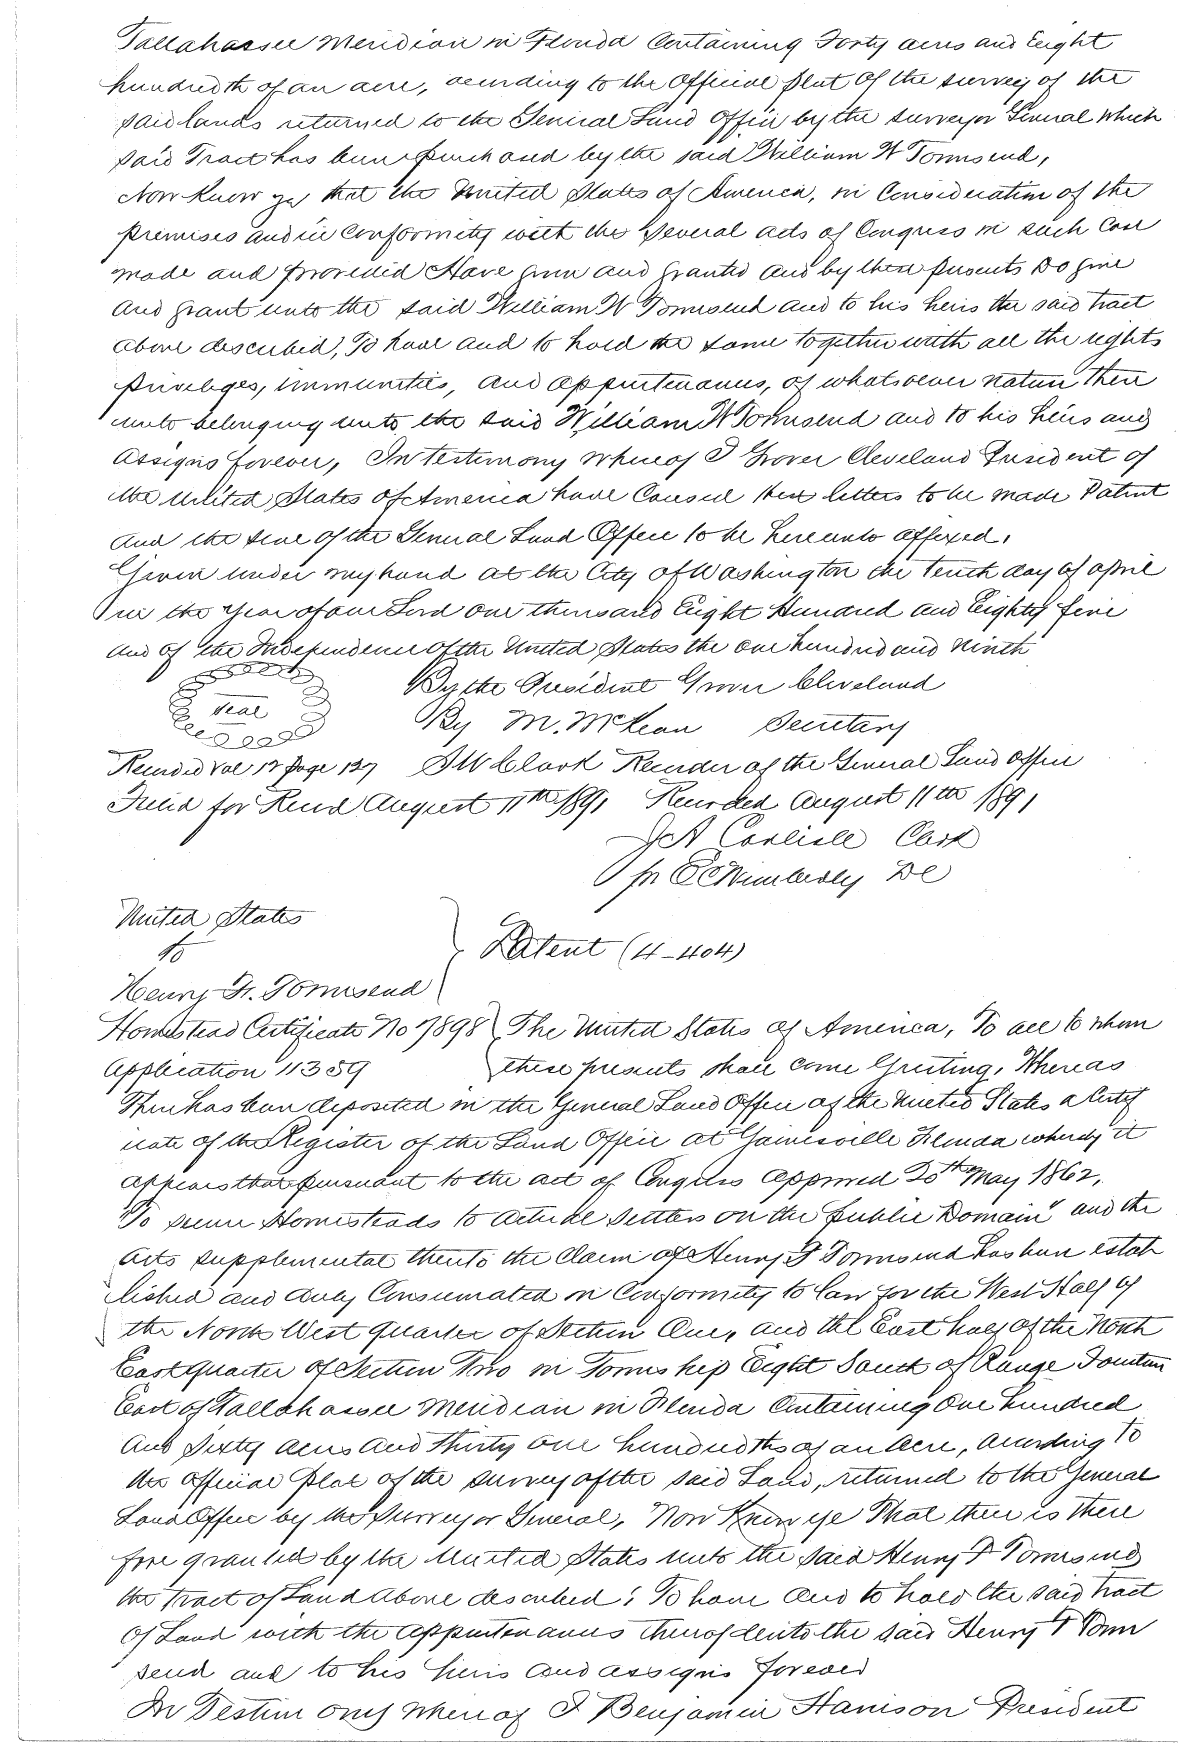 Tallahassee Meridian in Florida Containing Forty acres and Eight
hundredth of an acre, according to the Official plat of the survey of the
said lands returned to the General Land Office by the surveyor General which
said Tract has been purchased by the said William W Townsend,
Now Know ye that the United States of America, in Consideration of the
premises and in Conformity with the Several acts of Congress in such Case
made and provided Have given and granted and by these presents Do give
and grant unto the said William W Townsend and to his heirs the said tract
above described, To have and to hold the same together with all the rights
privileges, immunities, and appurtenances, of whatsoever nature there
unto belonging unto the said William W Townsend and to his heirs and
assigns forever, In testimony whereof I Grover Cleveland President of
the United States of America have Caused these letters to be made Patent
and the seal of the General Land Office to be hereunto affixed.
Given under my hand at the City of Washington the tenth day of april
in the year of our Lord one thousand Eight Hundred and Eighty five
and of the Independence of the United States the one hundred and ninth
Seal By the President Grover Cleveland
By M. McKean Secretary
Recorded Vol 12 Page 127 S W Clark Recorder of the General Land Office
Filed for Record August 11th 1891 Recorded August 11th 1891
J A Carlisle Clerk
pr E C Wimberly DC
United States
to
Henry F. Townsend
Patent (4-404)
Homestead Certificate No 7898 The United States of America, To all to whom
Application 11359 these presents shall come Greeting, Whereas
There has been deposited in the General Land Office of the United States a Certif
icate of the Register of the Land Office at Gainesville Florida whereby it
appears that pursuant to the act of Congress approved 20th May 1862,
"To secure Homesteads to actual settlers on the public Domain" and the
acts supplemental thereto the Claim of Henry F Townsend has been estab
lished and duly Consumated in Conformity to law for the West Half of
the North West quarter of Section One, and the East half of the North
East quarter of Section Two in Township Eight South of Range Fourteen
East of Tallahassee Meridian in Florida Containing One hundred
and Sixty acres and thirty one hundredths of an acre, according to
the official plat of the survey of the said Land, returned to the General
Land Office by the Surveyor General, Now Know ye That there is there
fore granted by the United States unto the said Henry F Townsend
the tract of Land above described; To have and to hold the said tract
of Land with the appurtenances thereof unto the said Henry F Town
send and to his heirs and assigns forever
In Testimony whereof I Benjamin Harrison President